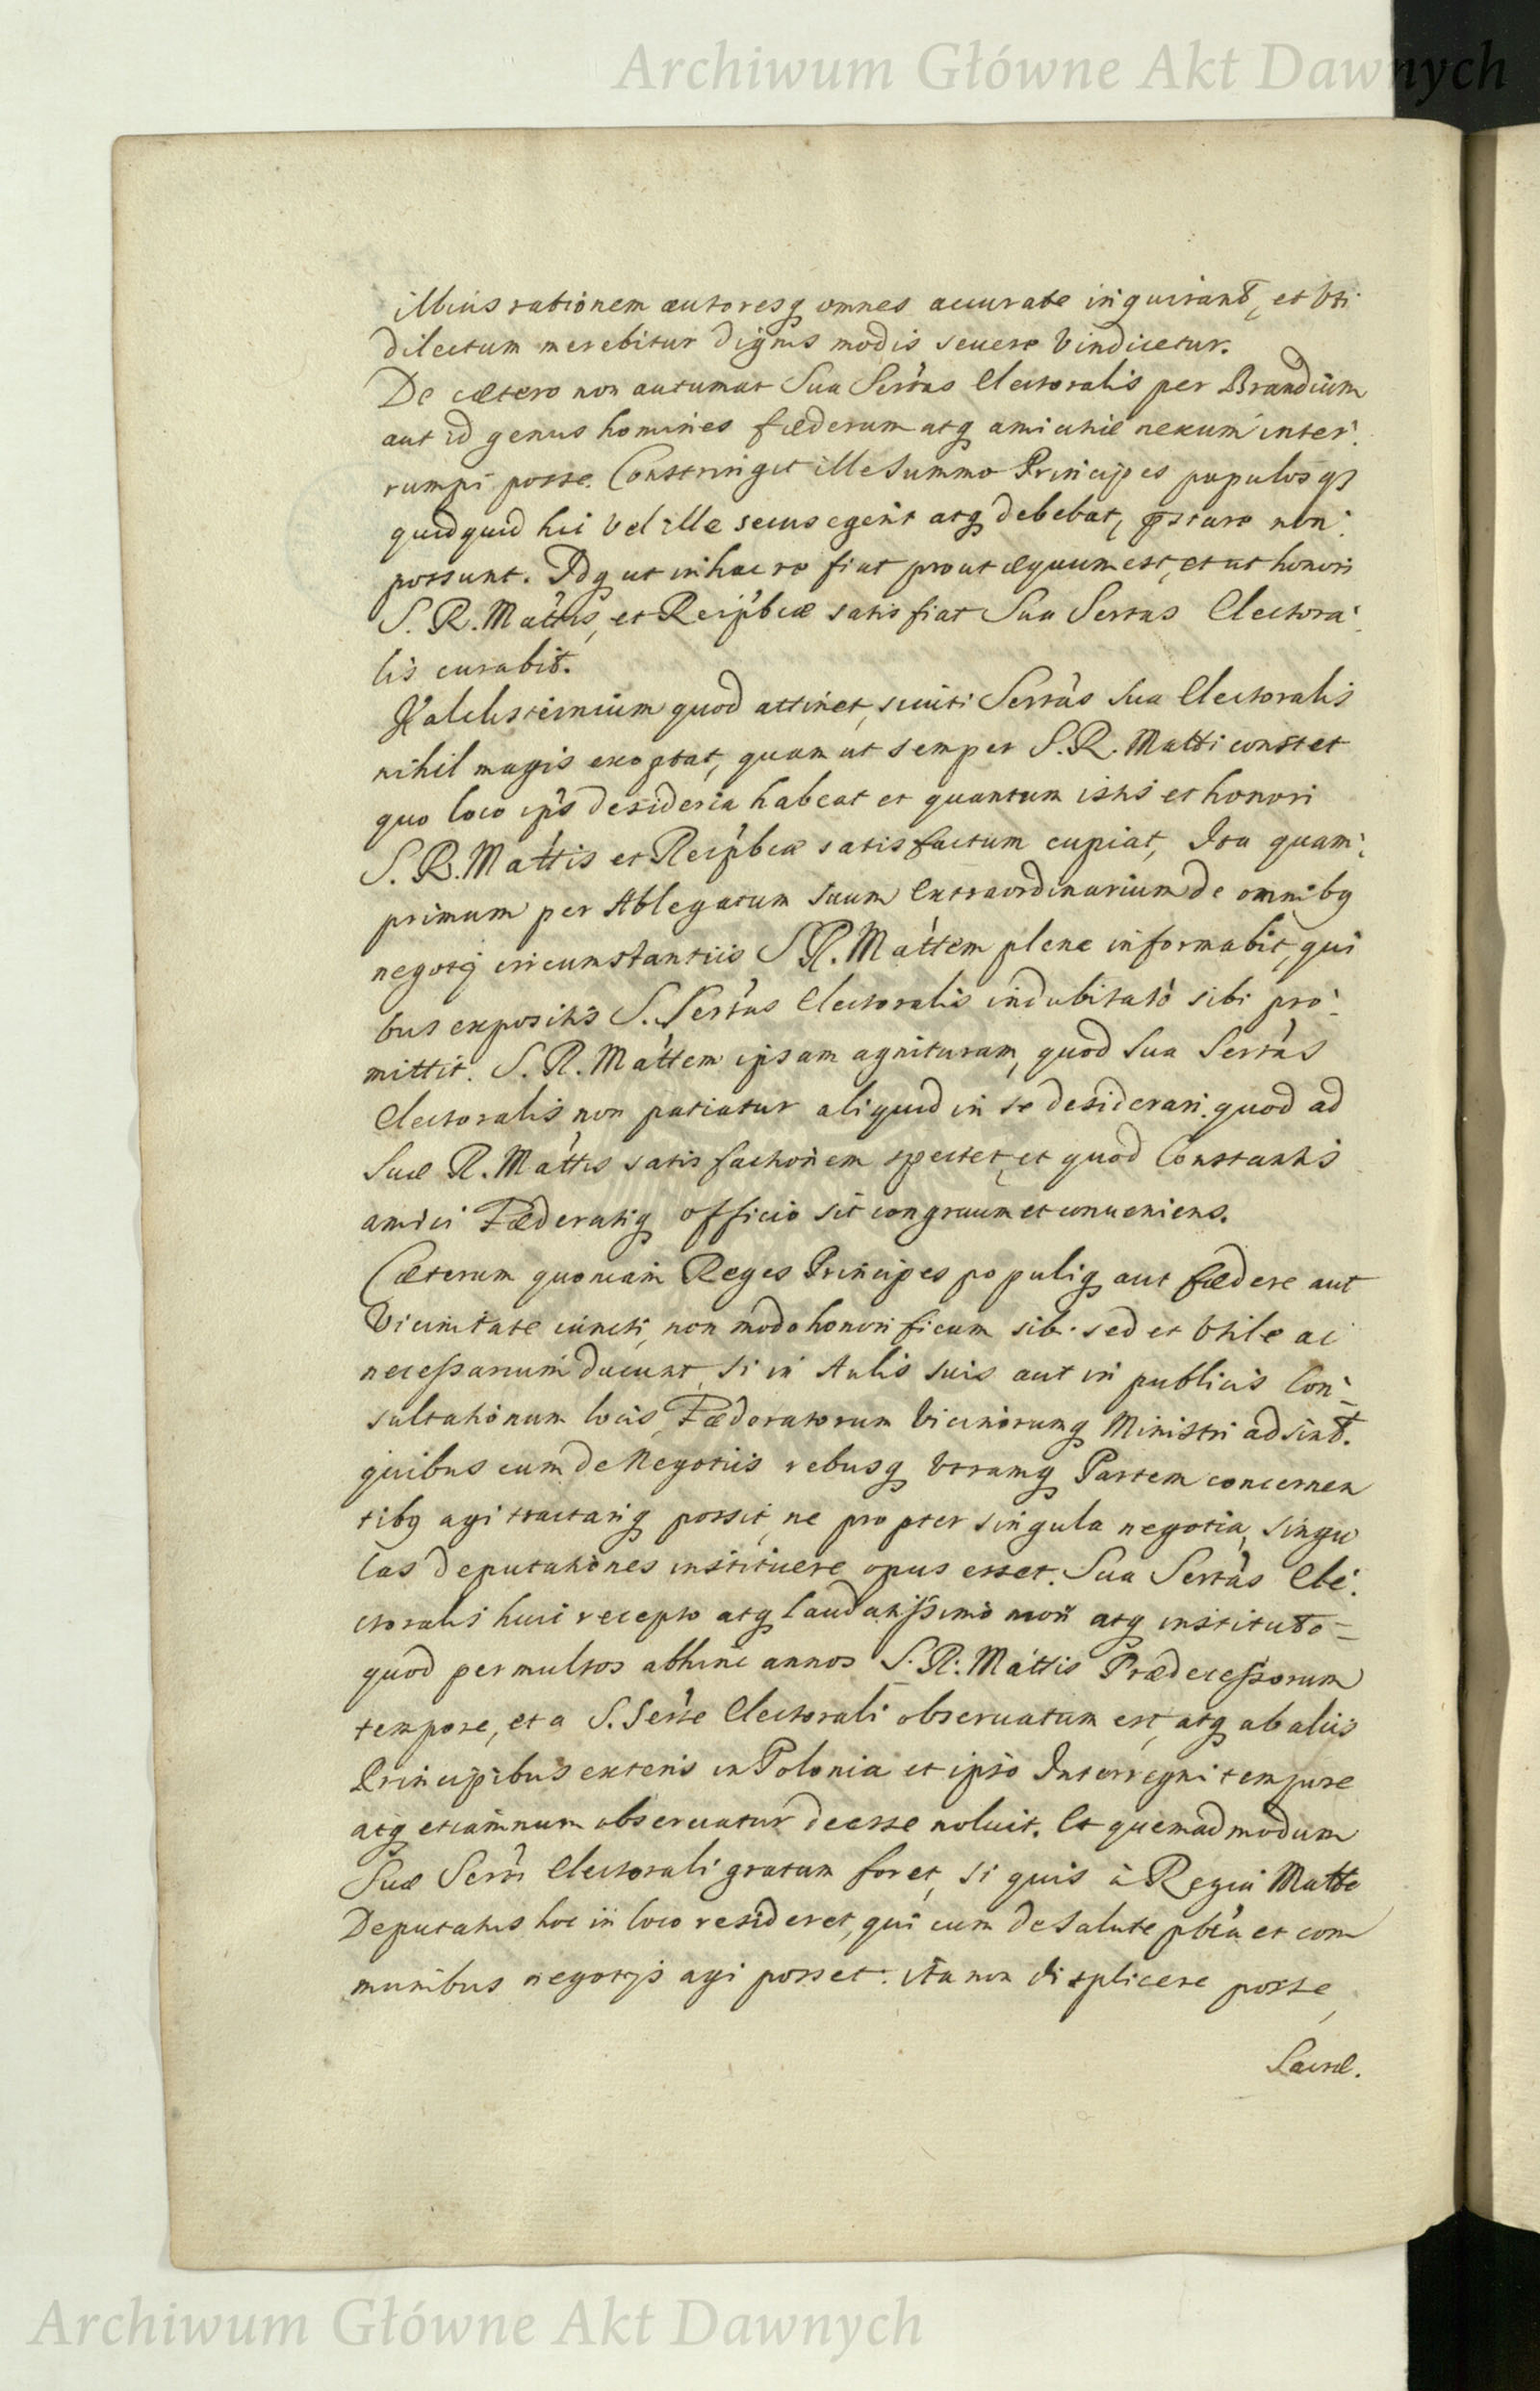 Archiwum Główne Akt Dawnych
illius rationem autoresq omnes accurate inquirant, et Vti
dilectum merebitur dignis modis seuere Vindicetur.
De cætero non autumat Sua Serttas Electoralis per Brandium
aut id genus homines fæderum atq amicitiæ nexum inter
rumpi posse. Constringit ille Summos Principes populosq,
quidquid hii Vel ille secus egerit atq debebat, præstare non
possunt. Idq ut in hac re fiat prout æquum est, et ut honori
S. R. Mattis, et Reipbcæ satisfiat Sua Serttas Electora
lis curabit.
Kalcksteinium quod attinet, sicuti Serttas Sua Electoralis
nihil magis exoptat, quam ut semper S. R. Matti constet
quo loco ips desideria habeat et quantum istis et honori
S. R. Mattis et Reipbcæ satisfactum cupiat, Ita quam
primum per Ablegatum suum Extraordinarium de omnibq
negotij circumstantiis S R. Mattem plene informabit, qui
bus expositis S. Serttas Electoralis indubitato sibi pro
mittit. S. R. Mattem ipsam agnituram, quod Sua Serttas
Electoralis non patiatur aliquid in se desiderari. quod ad
Suæ R. Mattis satisfactionem spectet, et quod Constantis
amici Fæderatiq officio sit congruum et conueniens.
Cæterum quoniam Reges Principes populiq aut fædere aut
Vicinitate iuncti, non modo honorificum sibi sed et Vtile ac
necessarium ducunt, si in Aulis suis aut in publicis Con
sultationum locis, Fæderatorum Vicinorumq Ministri adsint.
quibus cum de Negotiis rebusq Vtramq Partem concernen
tibq agi tractariq possit, ne propter singula negotia, singu
las deputationes instituere opus esset. Sua Serttas Ele
ctoralis huic recepto atq laudatissimo mori atq instituto
quod per multos abhinc annos S. R. Mattis Prædecessorum
tempore, et a S. Sertte Electorali obseruatum est, atq ab aliis
Principibus exteris in Polonia et ipso Interregni tempore
atq etiamnum obseruatur deesse noluit. Et quemadmodum
Suæ Sertti Electorali gratum foret, si quis à Regia Matte
Deputatus hoc in loco resideret, qui cum de salute pbca et com
munibus negotijs agi posset. ita non displicere posse,
Sacræ.
Archiwum Główne Akt Dawnych